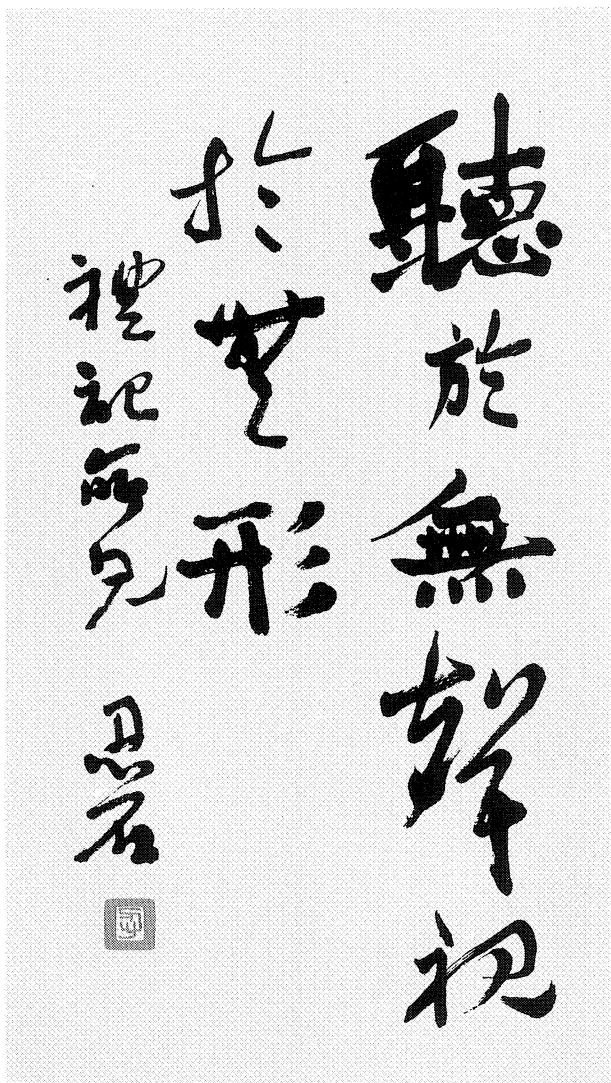 聽於無聲視
於無形
禮記所見 忍石